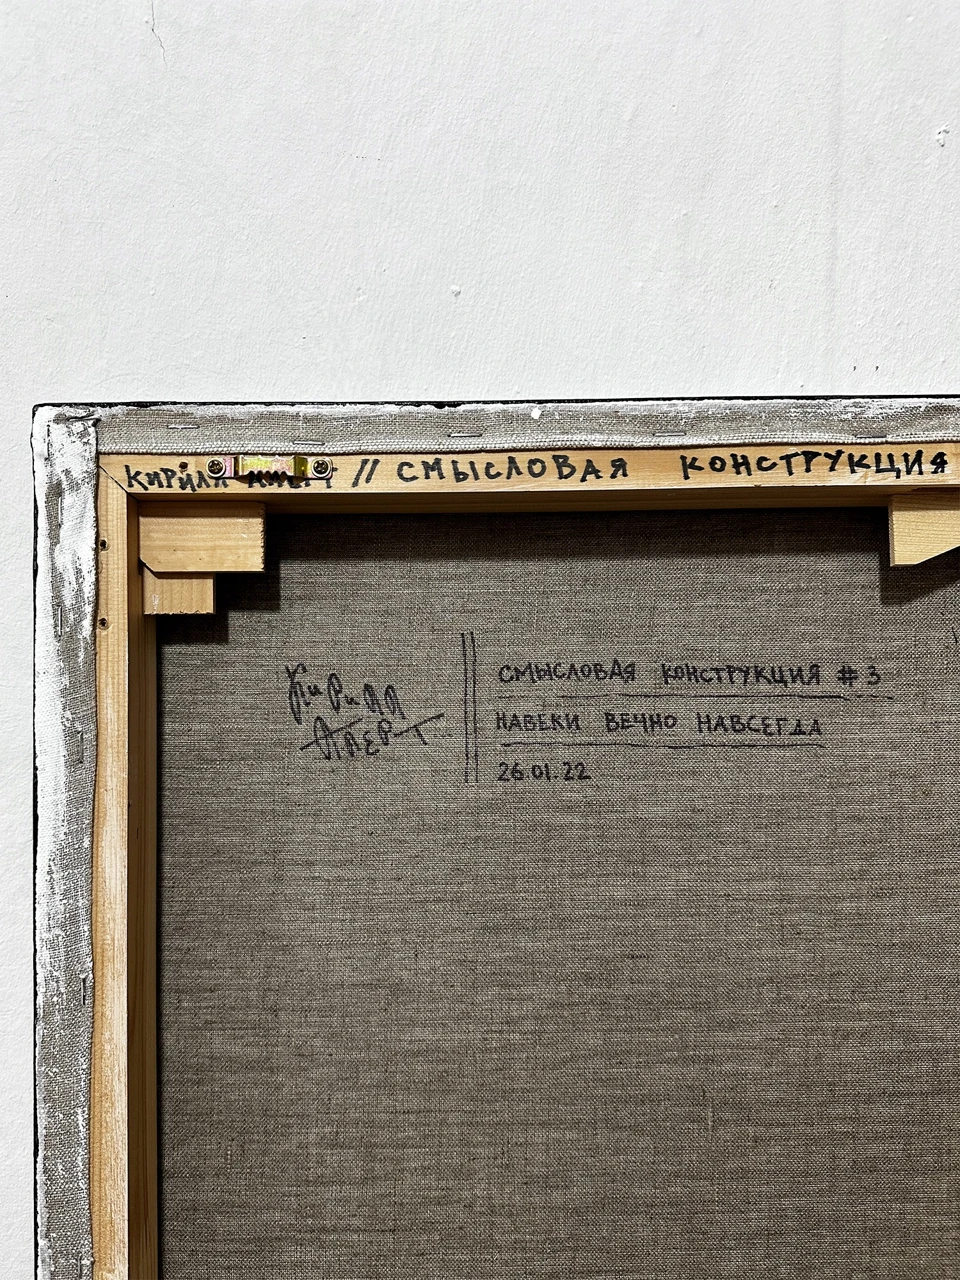 КИРИЛЛ // СМЫСЛОВАЯ КОНСТРУКЦИЯ
Кирилл
АПЕРТ
СМЫСЛОВАЯ КОНСТРУКЦИЯ # 3
НАВЕКИ ВЕЧНО НАВСЕГДА
26.01.22